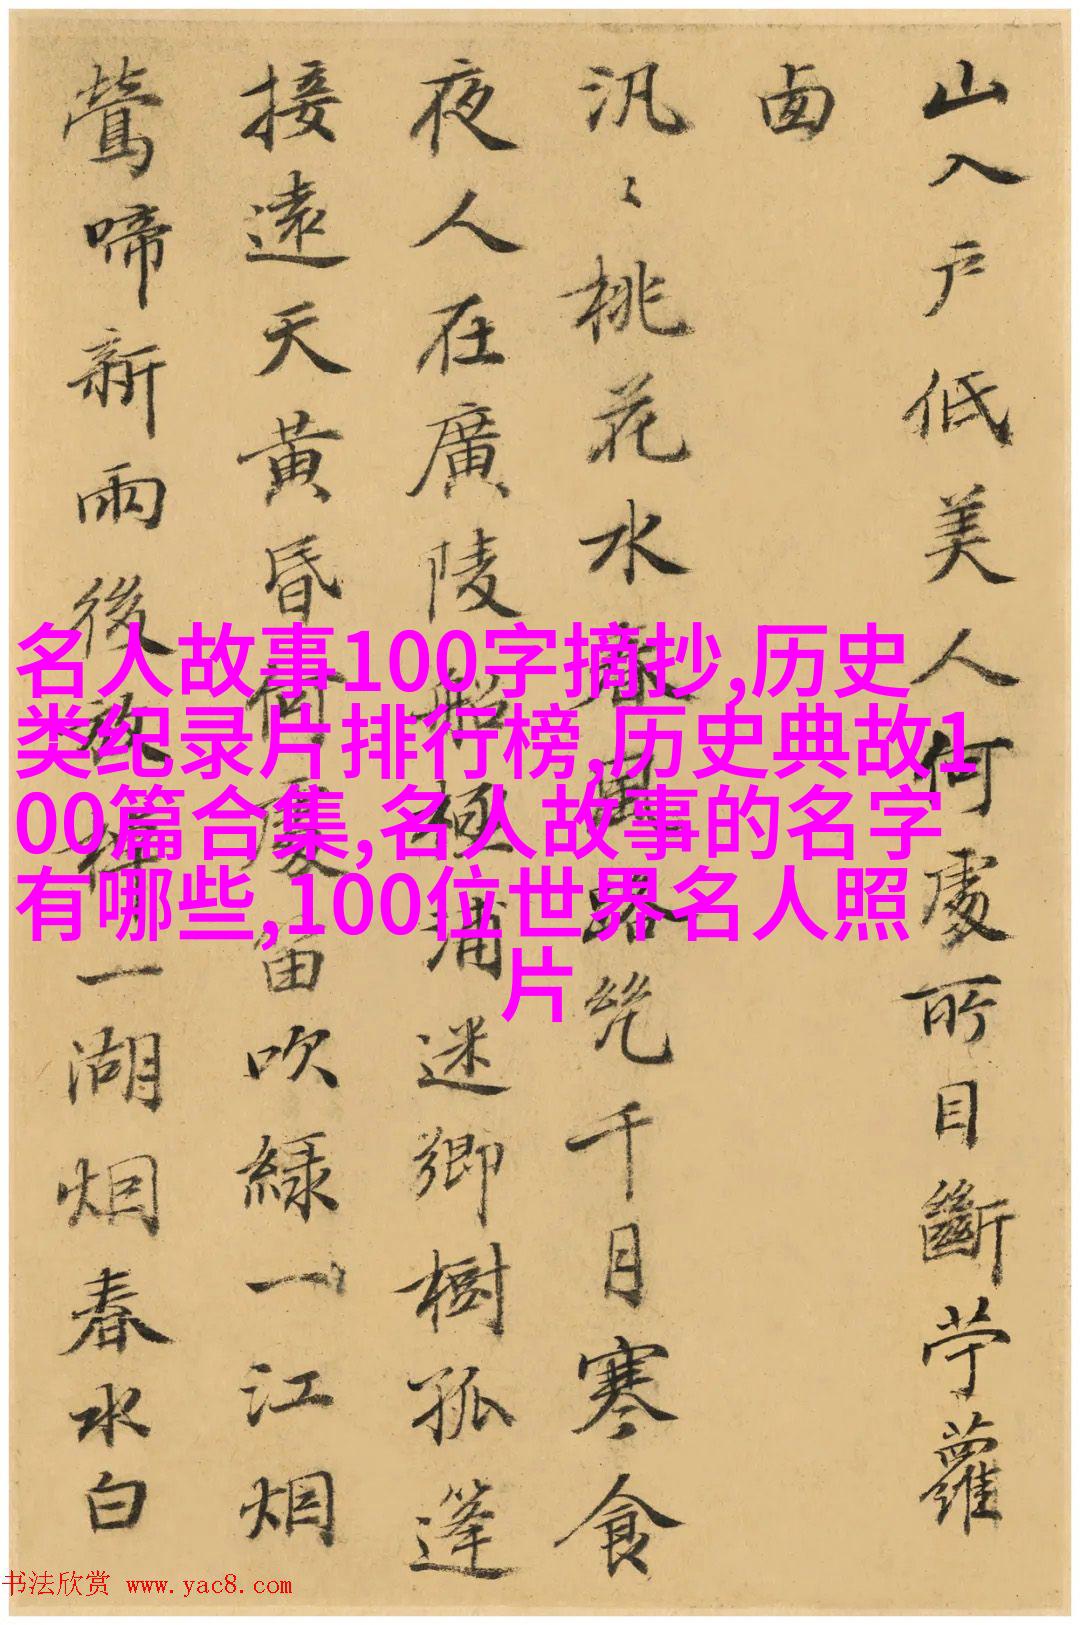 山入戶低美人何處所目斷苧蘿
卥
汎〻桃花水春風路幾千月寒食
夜人在廣陵船極浦迷鄉樹孤篷
接遠天黃昏何處笛吹綠一江烟
鶯啼新雨後放棹一湖烟春水白
名人故事100字摘抄,历史
类纪录片排行榜,历史典故1
00篇合集,名人故事的名字
有哪些,100位世界名人照
片
书法欣赏 www.yac8.com